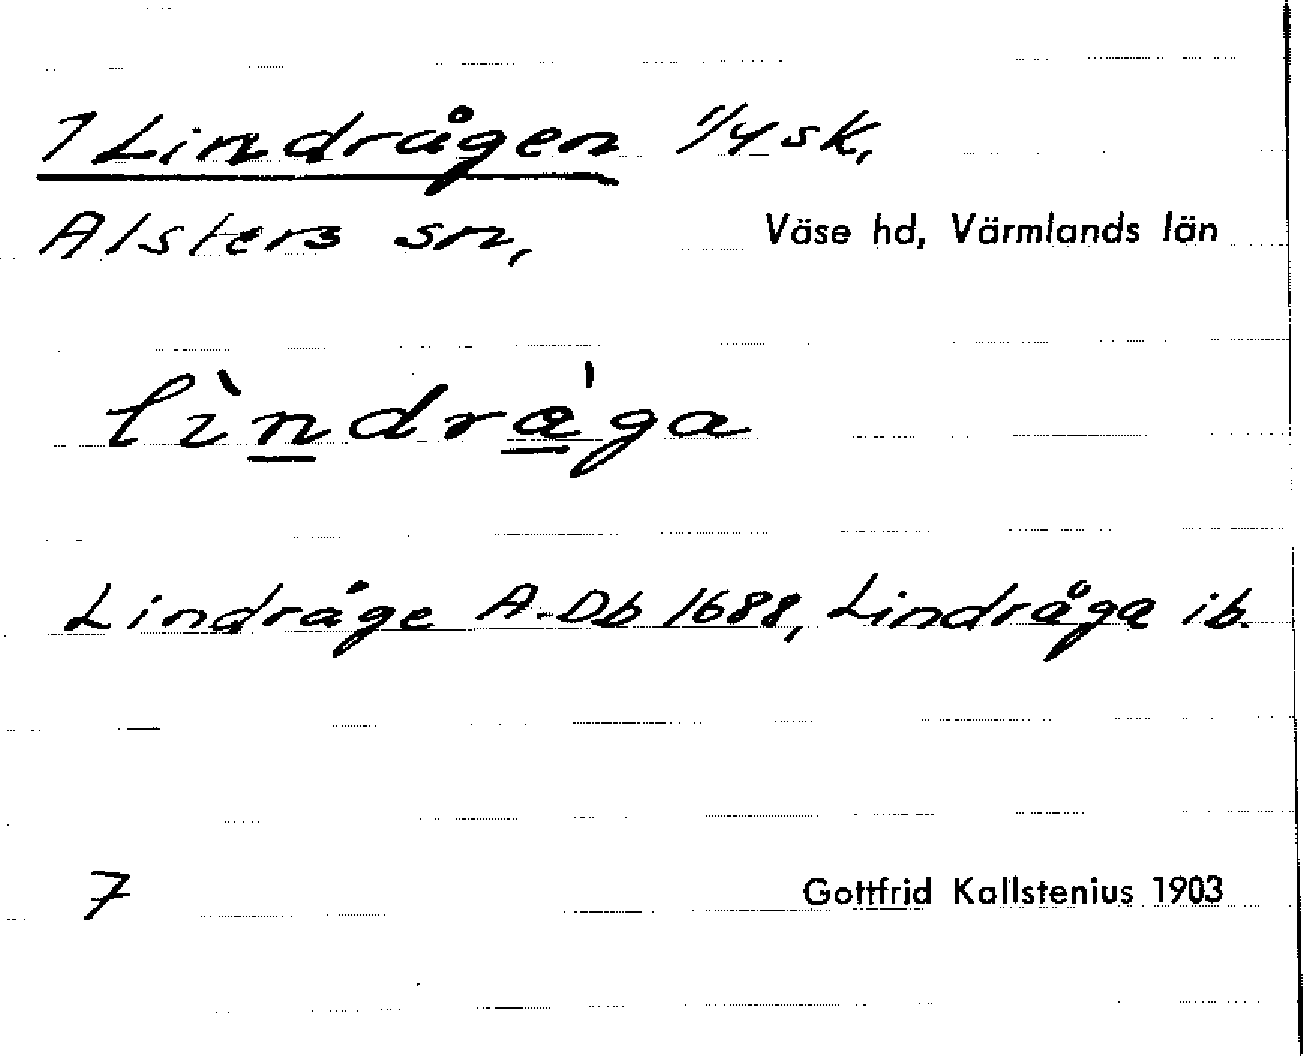 1 Lindrågen 1/4 sk,
Alsters sn, Väse hd, Värmlands län
lìndrá̀ga
Lindråge A-Db 1688, Lindråga ib.
7 Gottfrid Kallstenius 1903